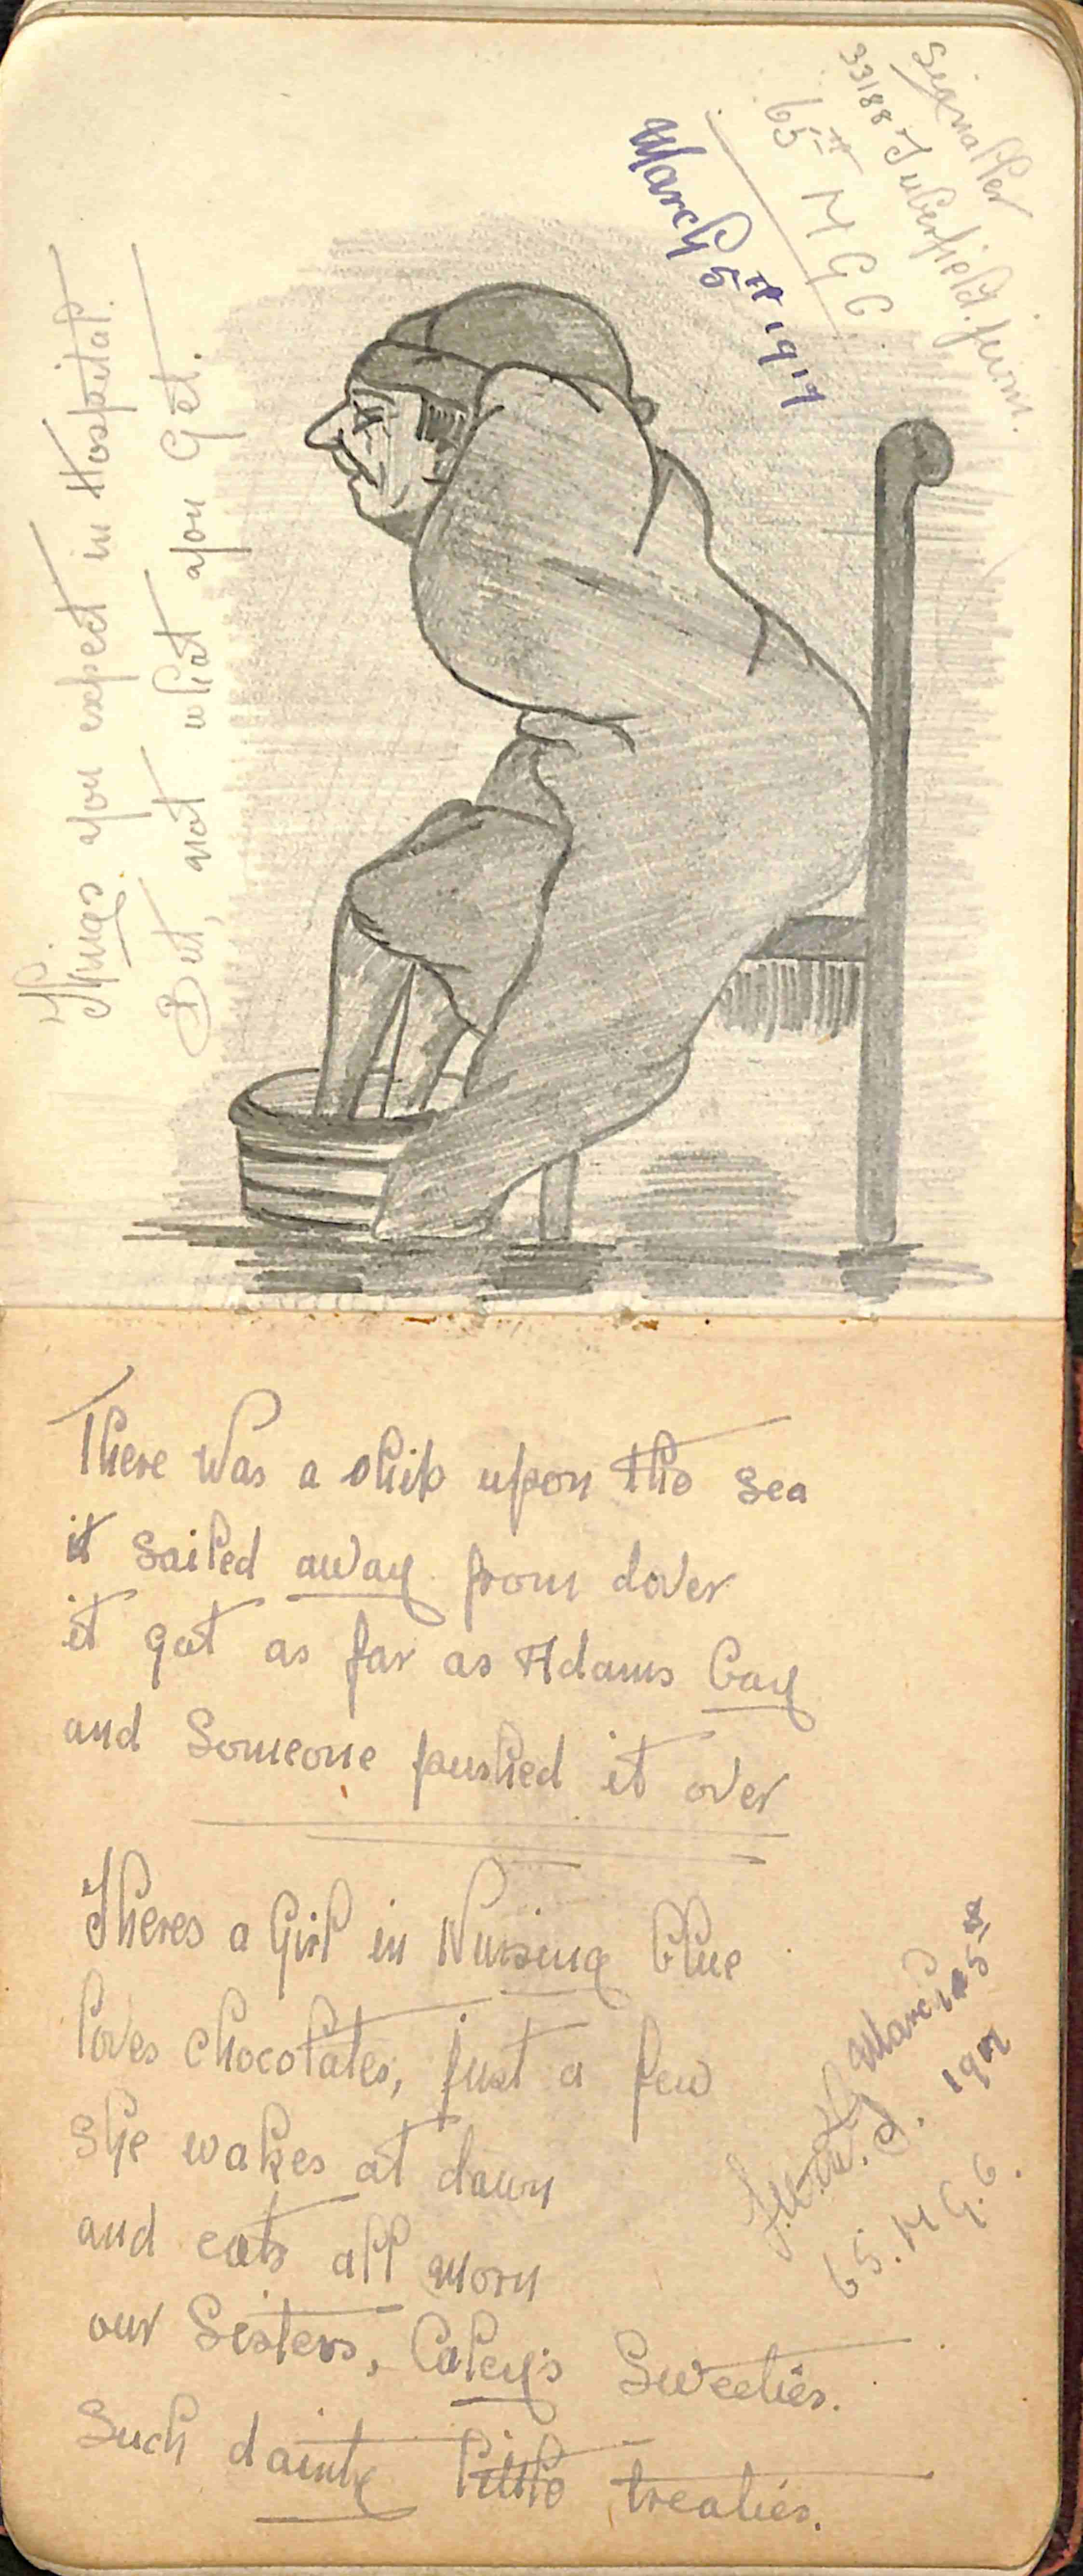 Signaller
33188 Tuberfield. Junr.
65th M G C
March 5th 1917
Things you expect in Hospital.
But, not what you Get.
There Was a ship upon the Sea
it Sailed away from dover
it got as far as Adams bay
and Someone pushed it over
Theres a Girl in Nursing blue
loves chocolates, just a few
She wakes at dawn
and eats all morn
our Sisters, Caley's Sweeties.
Such dainty little treaties.
March 5th
1917
65. M G. C.